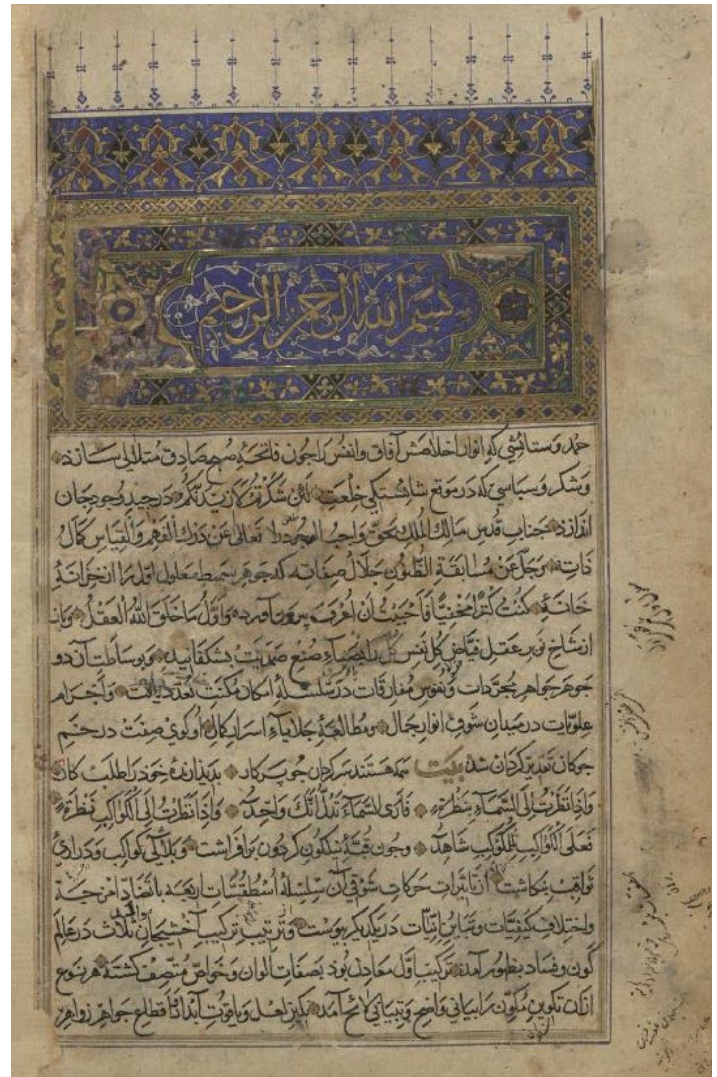 بسم الله الرحمن الرحيم
حمد وستایشی که انوار اخلاصش آفاق وانفس را چون فاتحهٔ صبح صادق متلالی سازد
وشکر وسپاسی که در موقع شایستکی خلعت لئن شکرتم لازیدنکم در جید وجود جان
اندازد جناب قدس مالک الملک بحق واجب الوجود را تعالی عن درک الفهم والقیاس کمال
ذاته وجل عن مسابقة الظنون جلال صفاته که جوهر بسیط معلول اول را از خزانهٔ
خانهٔ کنت کنزا مخفیا فاحببت ان اعرف بیرون آورده واول ما خلق الله العقل
از شاخ نوبر عقل فیاض کل نفس کل را بصباء صنع صمدیت بشکفانید وبوساطت آن دو
جوهر جواهر مجردات ونفوس مفارقات در سلسلهٔ امکان مکنت تعدد یافت واجرام
علویات در میدان شوق انوار جمال ومطالعهٔ جلایاء اسرار کمال او کوی صفت در خم
چوکان تقدیر کردان شد بیت همه هستند سرکردان چو پرکار پدیدارندهٔ خود را طلب کار
واذا نظرت الی السماء بنظرة فاری السماء تدل انک واحد واذا نظرت الی الکواکب نظرة
فعلی الکواکب للکواکب شاهد وچون قبهٔ نیلکون کردون برافراشت وبلالی کواکب ودراری
ثواقب بنکاشت از تاثیرات حرکات شوقی آن سلسلهٔ اسطقسات اربعه با تضاد امزجة
واختلاف کیفیات وتباین انیات در یکدیکر پیوست وترتیب ترکیب آخشیجان ثلاث در عالم
کون وفساد بظهور آمد ترکیب اول معادن بود بصفات الوان وخواص متصف کشته هر نوع
ازان تکوین مکون را بیانی واضح وتبیانی لایح آمد